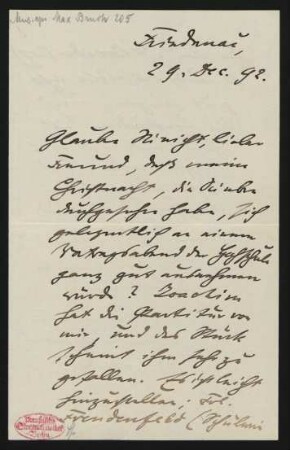 Mus. ep. Max Bruch 205
Friedenau,
29. Dec. 92.
Glauben Sie nicht, lieber
Freund, daß meine
Christnacht, die Sie eben
durchgesehen habe, sich
gelegentlich an einem
Vortragsabend der Hochschule
ganz gut ausnehmen
würde? Joachim
hat die Partitur von
mir und das Stück
scheint ihm sehr zu
gefallen. Es ist leicht
hinzustellen; Frl.
Freudenfeld (Schülerin